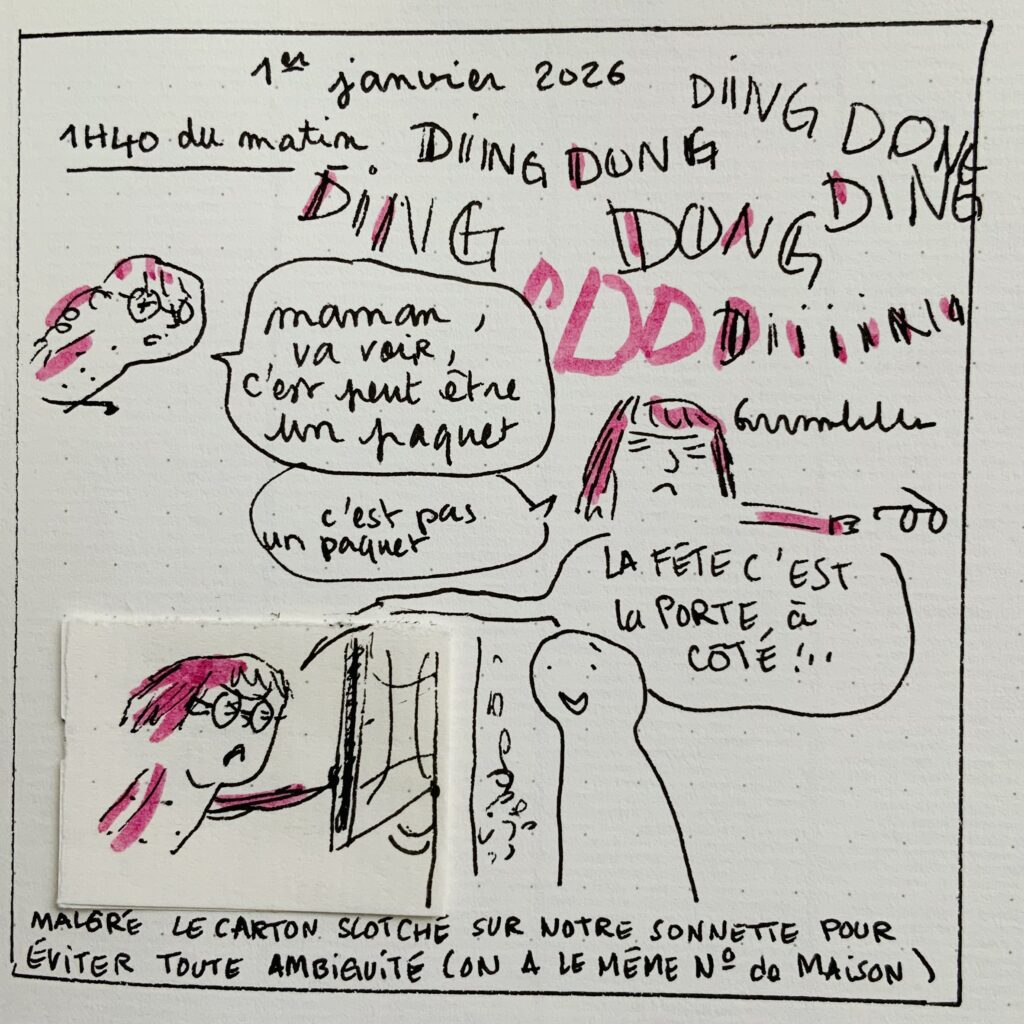 1er janvier 2026
1H40 du matin
DIING DONG
DIIING DONG
DING DONG DING
DDD Diiiiiing
maman,
va voir,
c'est peut être
un paquet
Grrrmblblb
c'est pas
un paquet
LA FÊTE C'EST
la PORTE à
CÔTÉ !..
MALGRÉ LE CARTON SLOTCHÉ SUR NOTRE SONNETTE POUR
ÉVITER TOUTE AMBIGUITÉ (ON A LE MÊME No de MAISON)